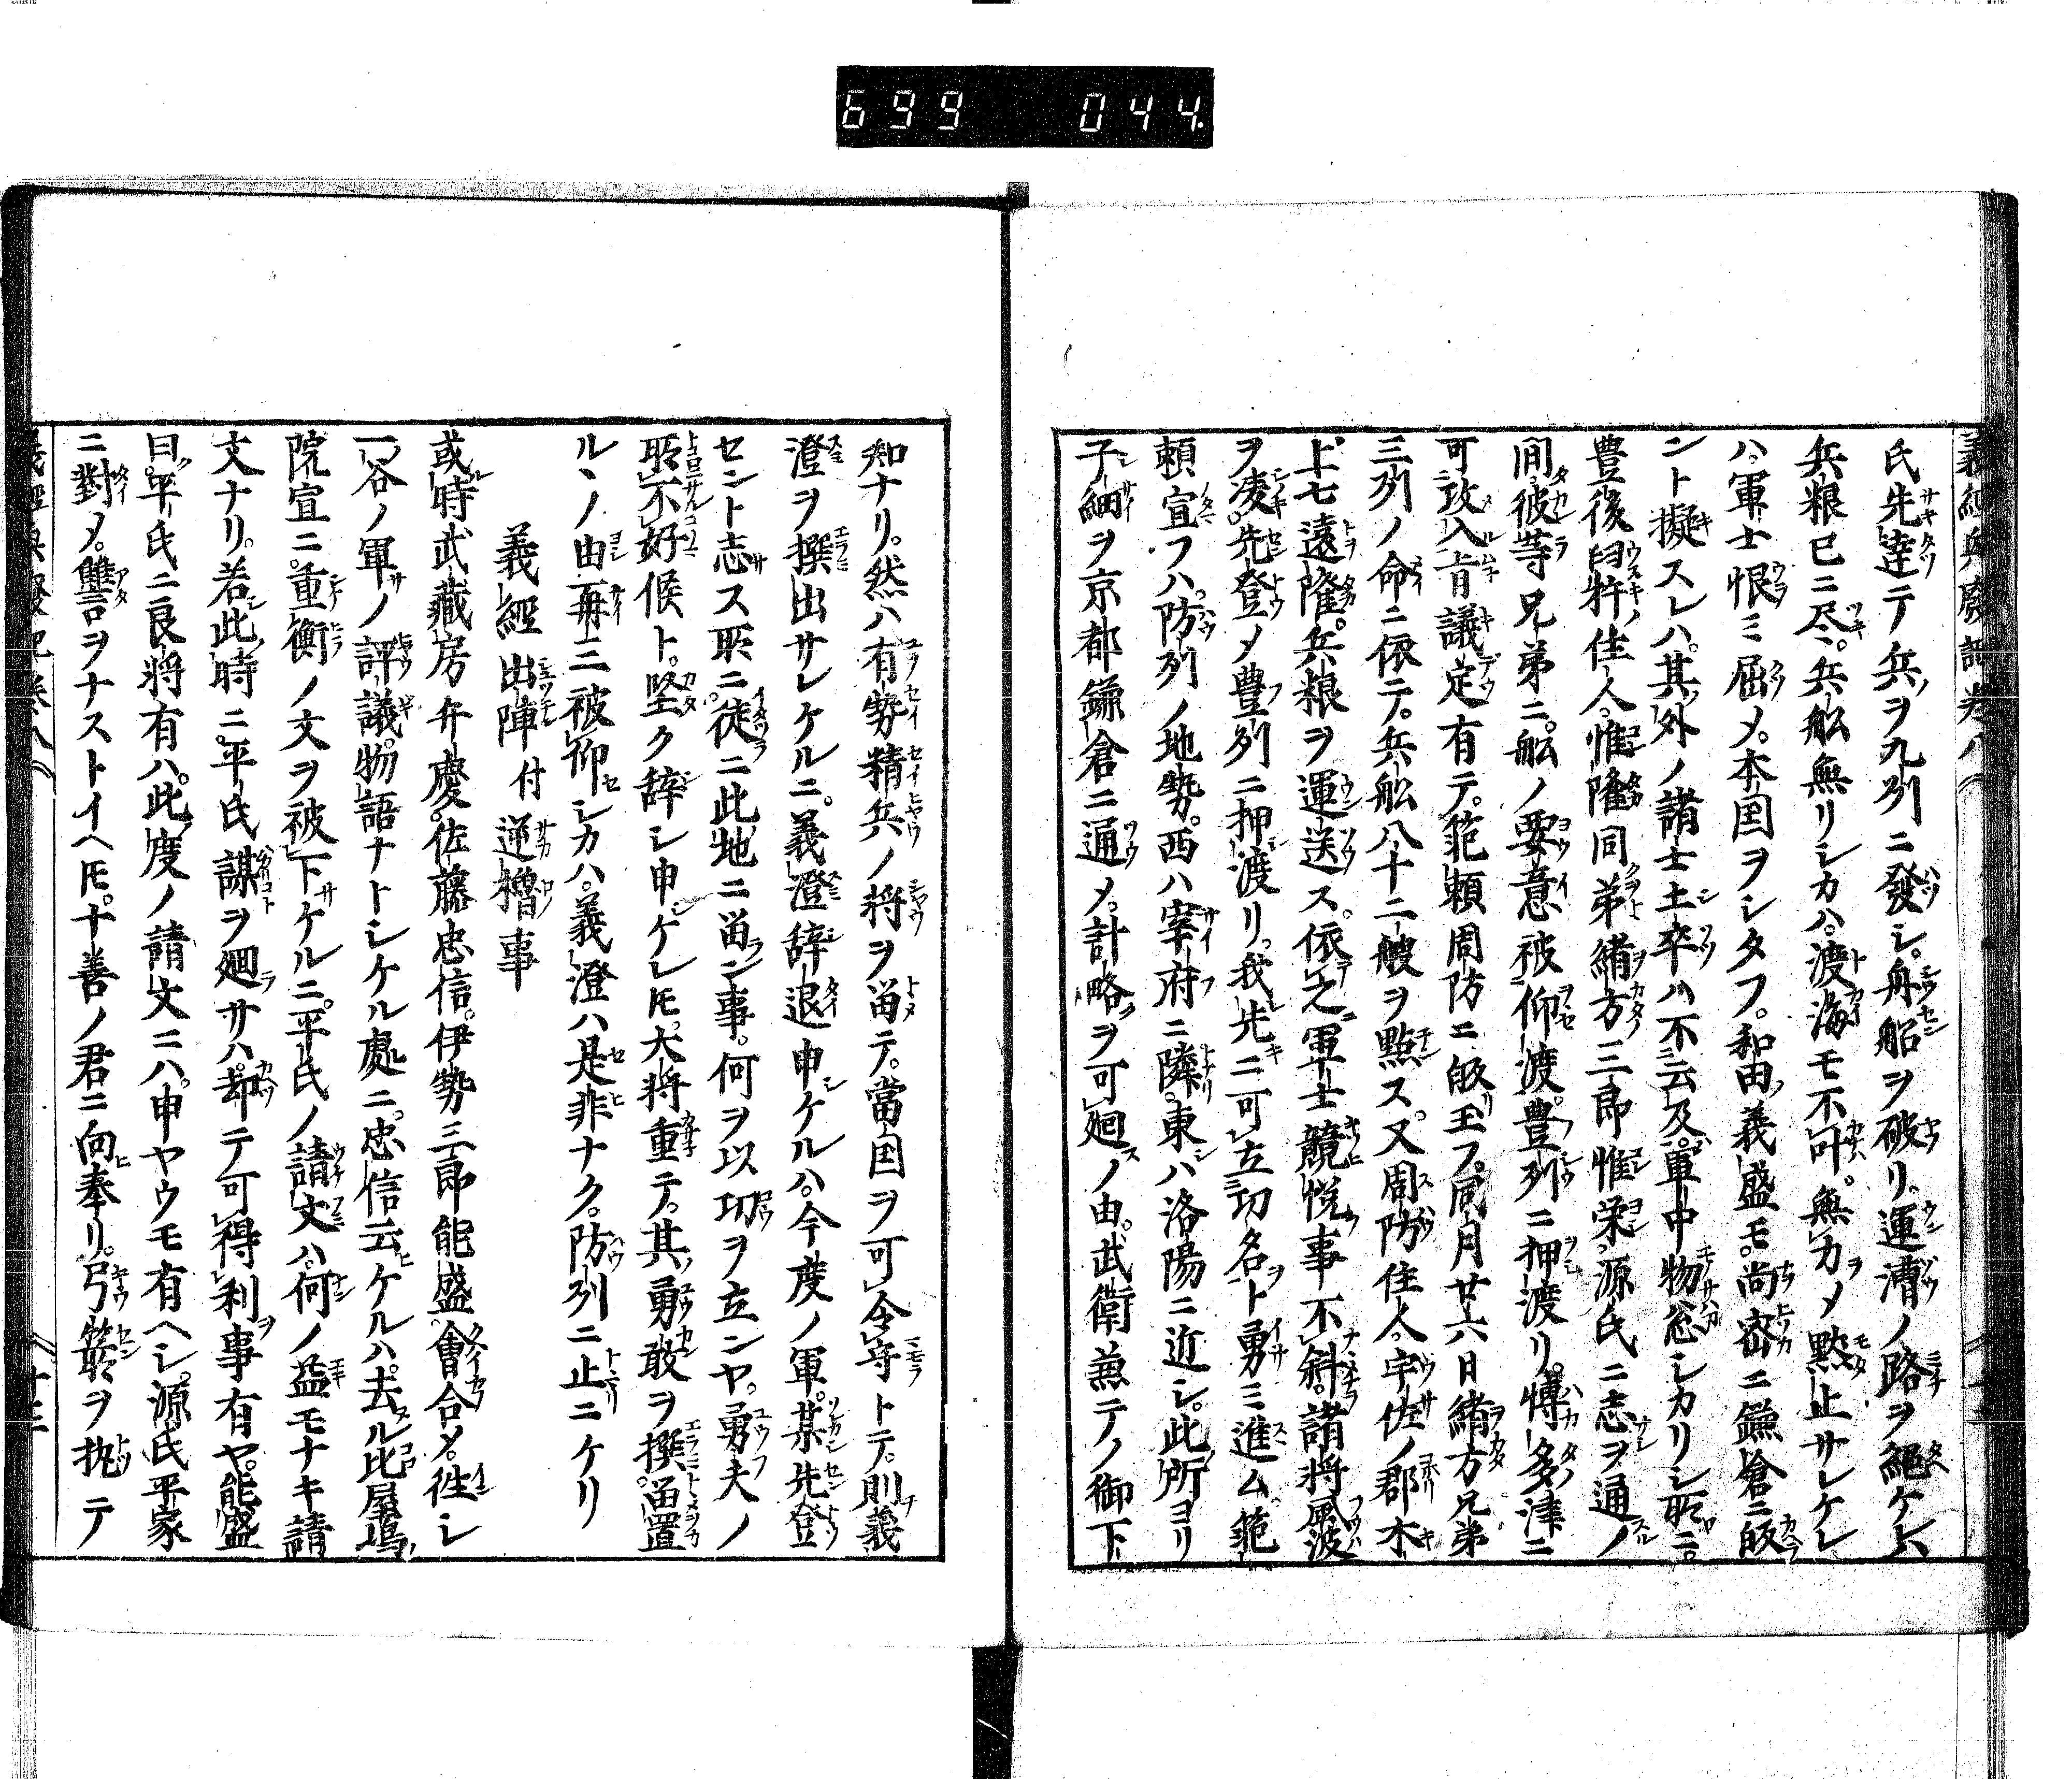 699 044.
義經興廢記卷八
氏先達テ兵ヲ九列ニ發シ。舟船ヲ破リ。運漕ノ路ヲ絕ケレハ
兵粮已ニ尽。兵舩無リシカハ。渡海モ不叶。無力メ黙止サレケレ
ハ。軍士恨ミ屈メ。本国ヲシタフ。和田義盛モ。尚密ニ鎌倉ニ皈
ント擬スレハ。其外ノ諸士士卒ハ不云及。軍中物忩シカリシ所ニ。
豊後臼杵住人。惟隆同弟緒方三郎惟栄。源氏ニ志ヲ通ノ
間。彼等兄弟ニ。舩ノ要意被仰渡。豊列ニ押渡リ。博多津ニ
可攻入旨議定有テ。範頼周防ニ皈玉フ。同月廿六日緒方兄弟
三列ノ命ニ依テ。兵舩八十二艘ヲ點ス。又周防住人。宇佐ノ郡木
上七遠隆。兵粮ヲ運送ス。依之軍士競悦事不斜。諸將風波
ヲ凌。先登メ豊列ニ押渡リ。我先ニ可立功名ト勇ミ進ム。範
頼宣フハ。防列ノ地勢。西ハ宰府ニ隣。東ハ洛陽ニ近シ。此所ヨリ
子細ヲ京都鎌倉ニ通メ。計略ヲ可廻ノ由。武衛兼テノ御下
知ナリ。然ハ有勢精兵ノ将ヲ畄テ。當国ヲ可令守トテ。則義
澄ヲ撰出サレケルニ。義澄辞退申ケルハ。今度ノ軍。某先登
セント志ス所ニ。徒ニ此地ニ畄ン事。何ヲ以功ヲ立ンヤ。勇夫ノ
所不好候ト。堅ク辞シ申ケレ𪜈。大将重テ。其勇敢ヲ撰。畄置
ルヽノ由再三被仰シカハ。義澄ハ是非ナク。防列ニ止ニケリ
義經出陣付逆櫓事
或時武藏房弁慶。佐藤忠信。伊勢三郎能盛。會合メ。徃シ
一谷ノ軍ノ評議。物語ナトシケル處ニ。忠信云ケルハ。去ル比屋嶋
院宣ニ。重衡ノ文ヲ被下ケルニ。平氏ノ請文ハ。何ノ益モナキ請
文ナリ。若此時ニ。平氏謀ヲ廻サハ。却テ可得利事有ヤ。能盛
曰。平氏ニ良將有ハ。此度ノ請文ニハ。申ヤウモ有ヘシ。源氏平家
ニ對メ。讐言ヲナストイヘ𪜈。十善ノ君ニ向奉リ。弓箭ヲ執テ
義經興廢記卷八
十三